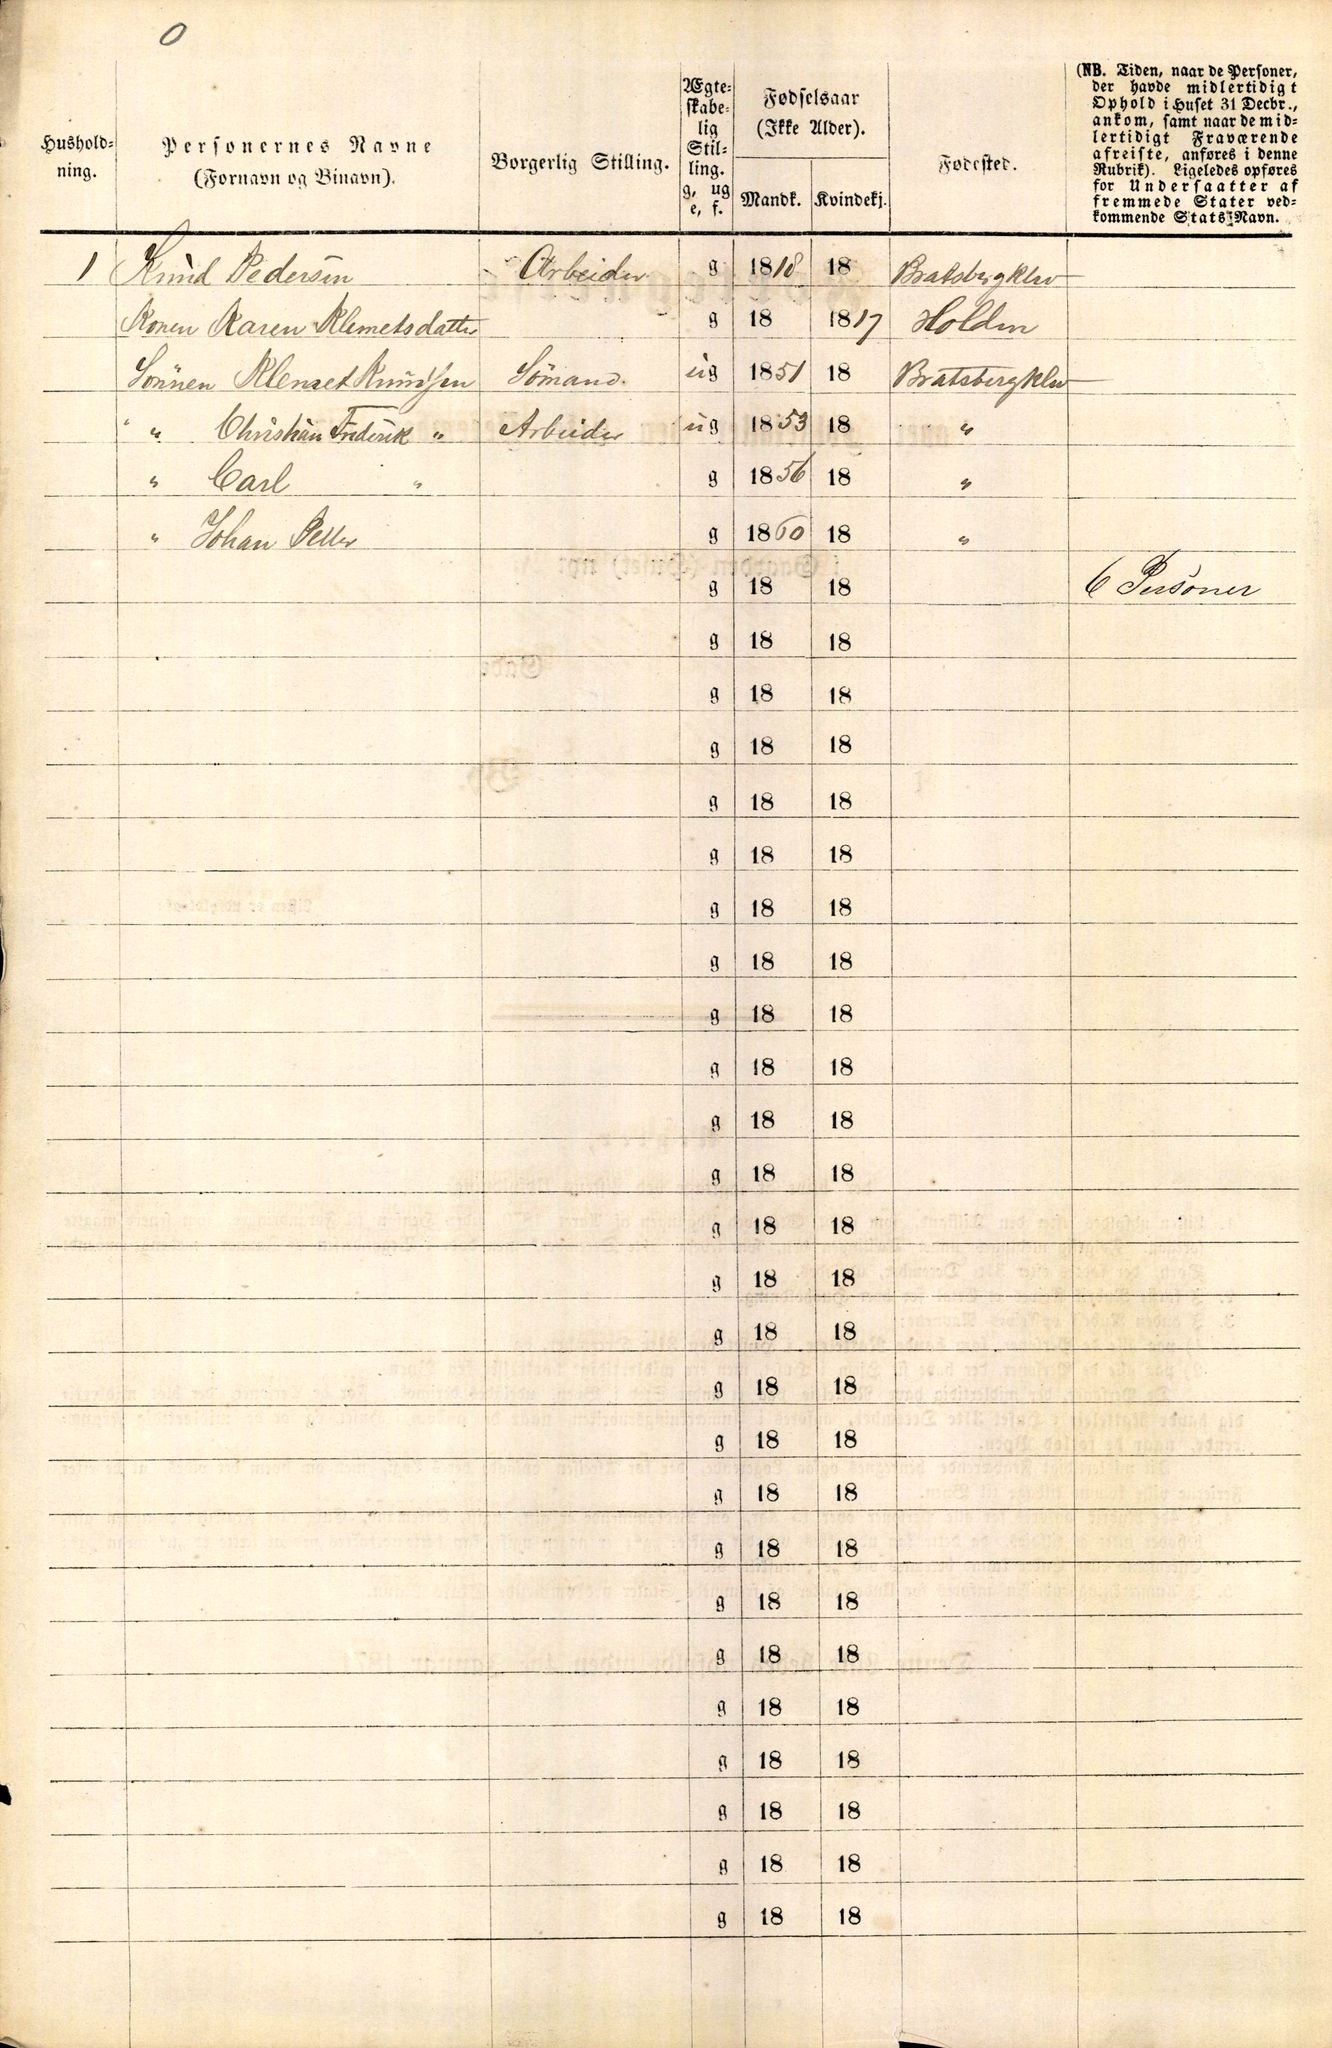 0
Hushold-
ning.
Personernes Navne
(Fornavn og Binavn).
Borgerlig Stilling.
Ægte-
skabe-
lig
Stil-
ling.
g, ug
e, f.
Fødselsaar
(Ikke Alder).
Mandk. Kvindekj.
Fødested.
(NB. Tiden, naar de Personer,
der havde midlertidigt
Ophold i Huset 31 Decbr.,
ankom, samt naar de mid-
lertidigt Fraværende
afreiste, anføres i denne
Rubrik). Ligeledes opføres
for Undersaatter af
fremmede Stater ved-
kommende Stats Navn.
1 Knud Pedersen Arbeider g 1818 18 Bratsbergklev
Konen Karen Klemetsdatter g 18 1817 Holden
Sønnen Klemet Knudsen Sømand. ug 1851 18 Bratsbergklev
" Christian Frederik " Arbeider ug 1853 18 "
" Carl " g 1856 18 "
" Johan Petter g 1860 18 "
g 18 18 6 Personer
g 18 18
g 18 18
g 18 18
g 18 18
g 18 18
g 18 18
g 18 18
g 18 18
g 18 18
g 18 18
g 18 18
g 18 18
g 18 18
g 18 18
g 18 18
g 18 18
g 18 18
g 18 18
g 18 18
g 18 18
g 18 18
g 18 18
g 18 18
g 18 18
g 18 18